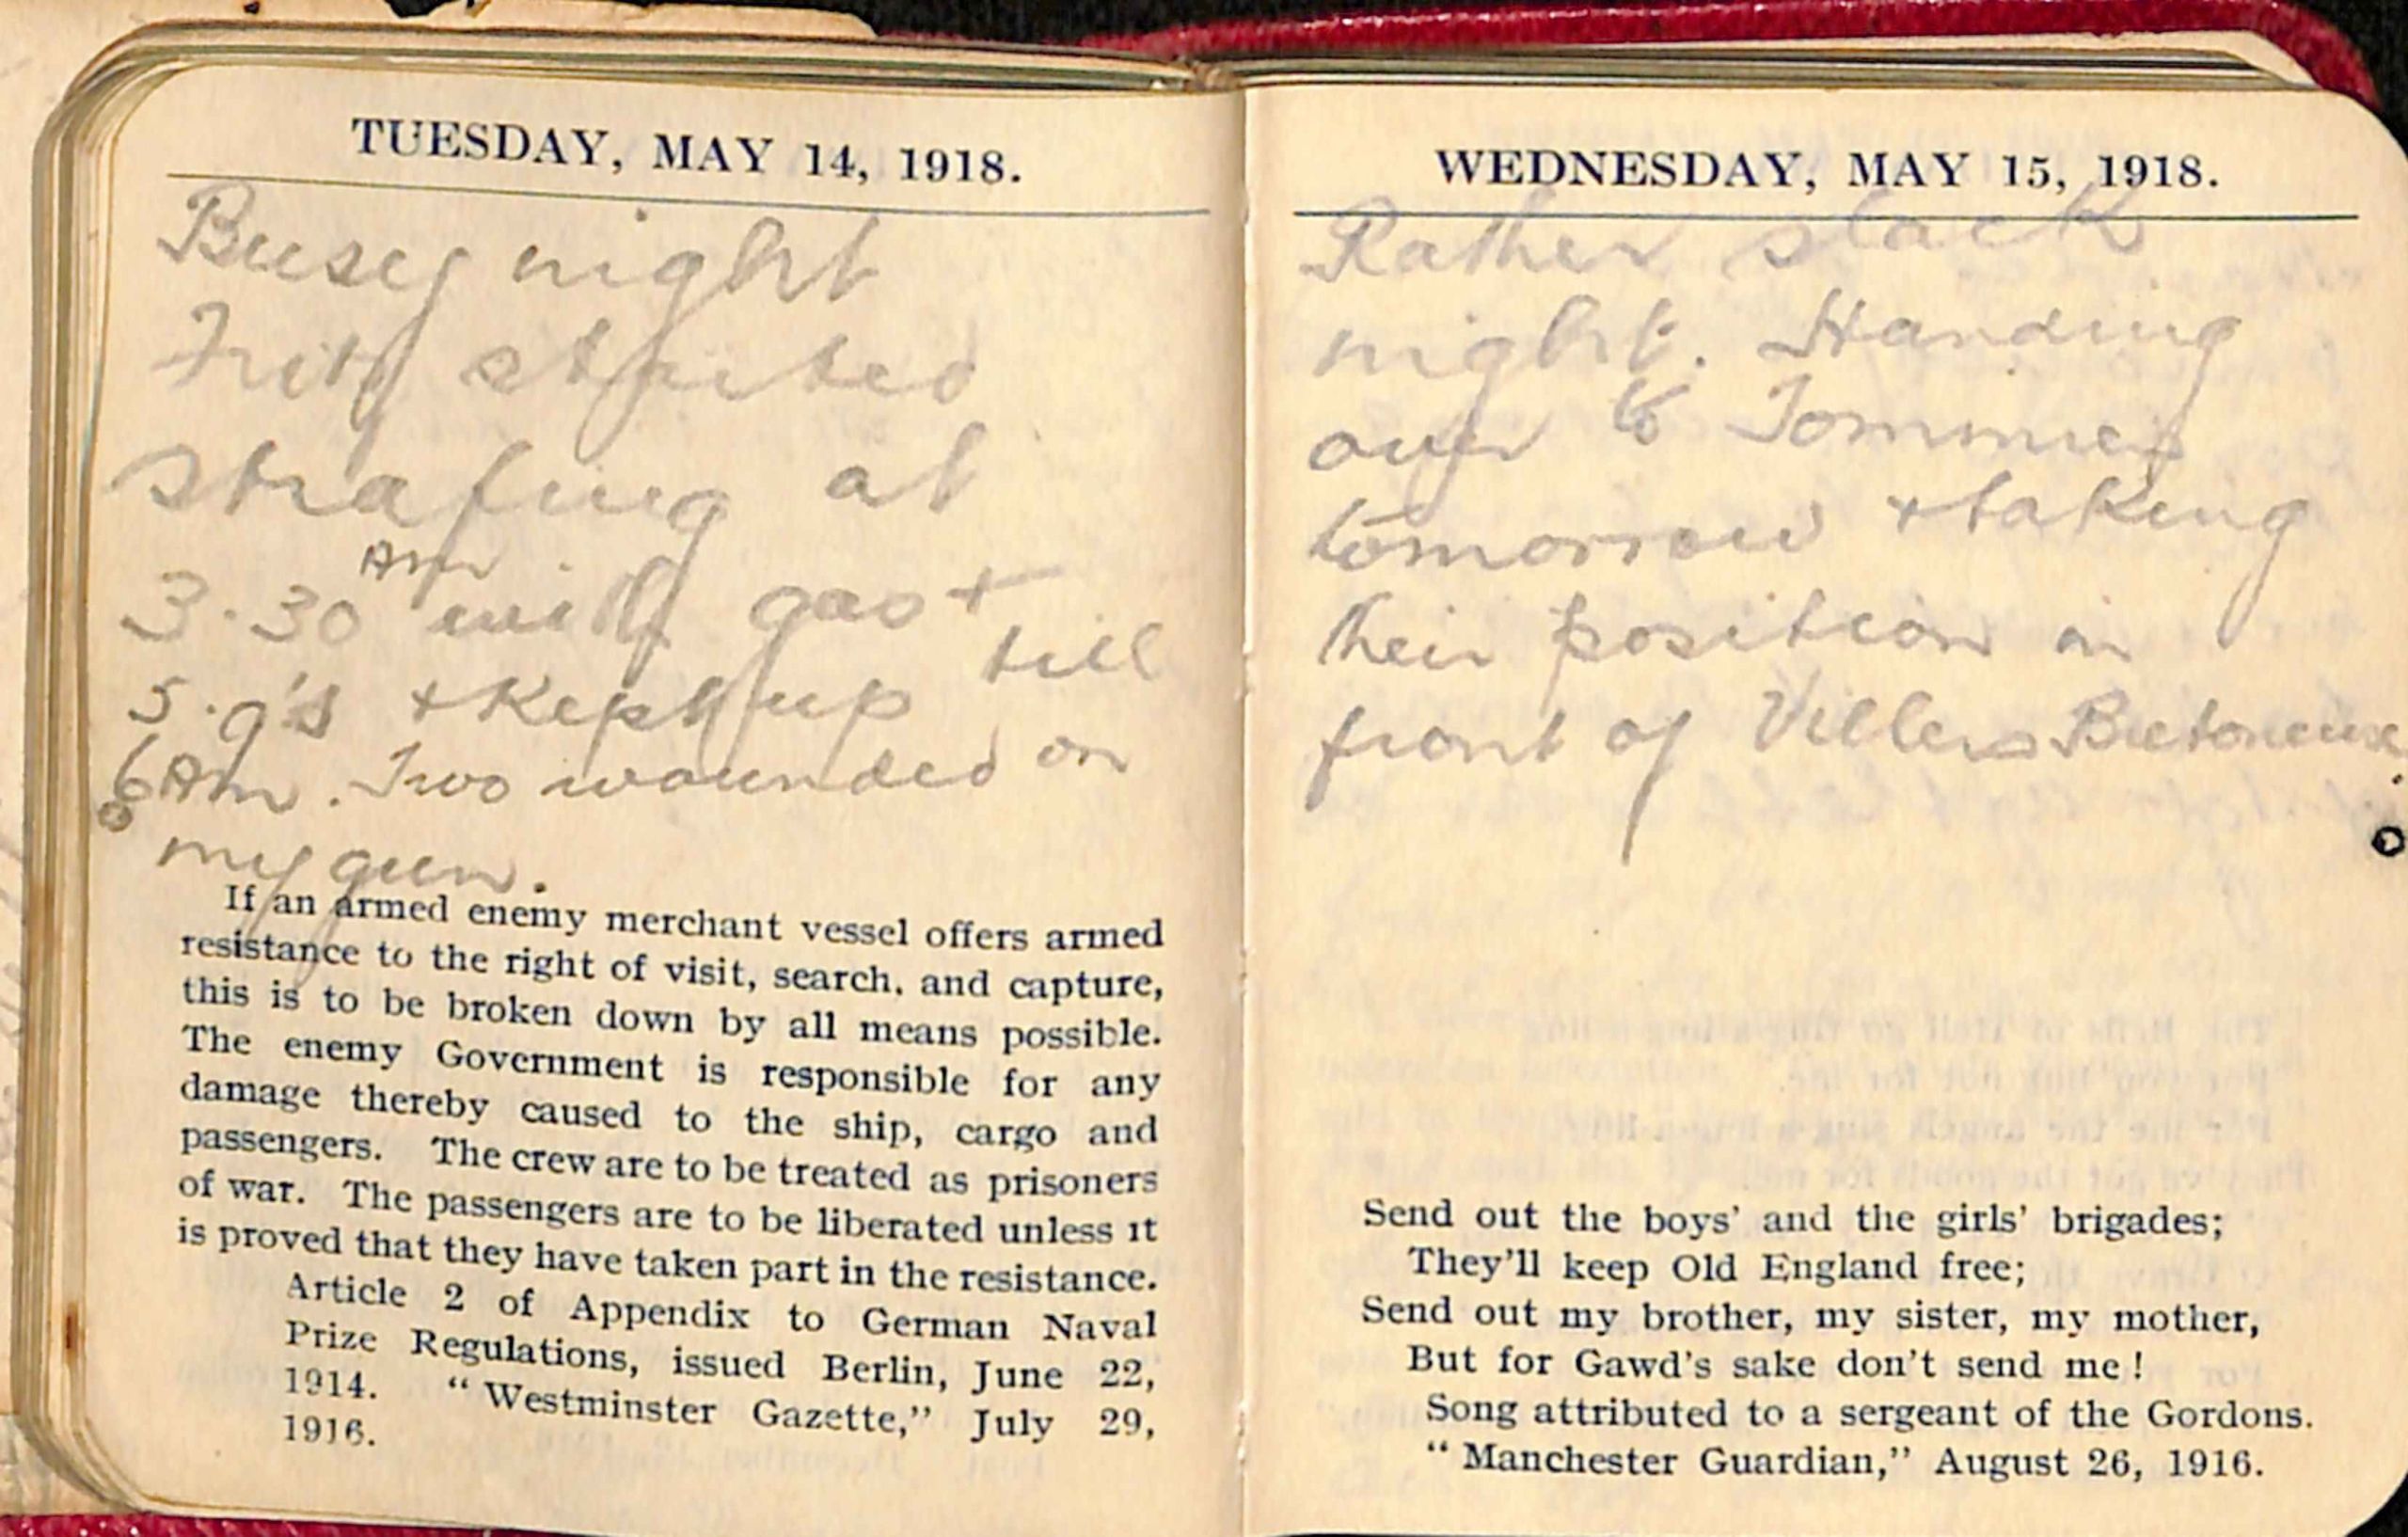 TUESDAY, MAY 14, 1918.
Busey night
Fritz started
strafing at
3.30 Am with gas +
5.9's + Kept up till
6 Am. Two wounded on
my gun.
If an armed enemy merchant vessel offers armed
resistance to the right of visit, search, and capture,
this is to be broken down by all means possible.
The enemy Government is responsible for any
damage thereby caused to the ship, cargo and
passengers. The crew are to be treated as prisoners
of war. The passengers are to be liberated unless it
is proved that they have taken part in the resistance.
Article 2 of Appendix to German Naval
Prize Regulations, issued Berlin, June 22,
1914. "Westminster Gazette," July 29,
1916.
WEDNESDAY, MAY 15, 1918.
Rather slack
night. Handing
over to Tommies
tomorrow + taking
their position in
front of Villers Bretoneux.
Send out the boys' and the girls' brigades;
They'll keep Old England free;
Send out my brother, my sister, my mother,
But for Gawd's sake don't send me!
Song attributed to a sergeant of the Gordons.
"Manchester Guardian," August 26, 1916.